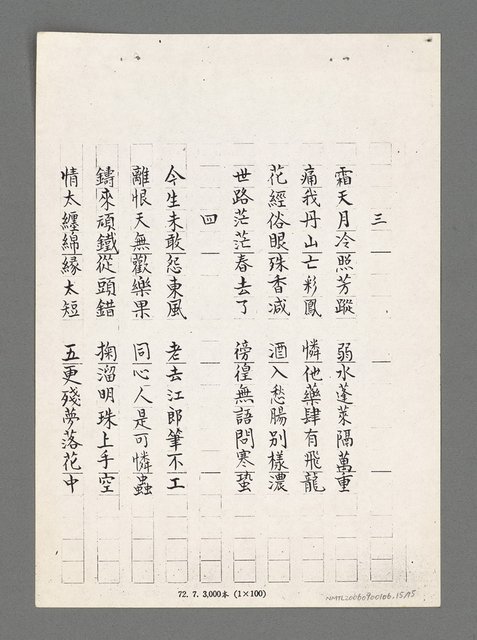 三
霜天月冷照芳蹤　弱水蓬萊隔萬重
痛我丹山亡彩鳳　憐他藥肆有飛龍
花經俗眼殊香減　酒入愁腸別樣濃
世路茫茫春去了　徬徨無語問寒蛩
四
今生未敢怨東風　老去江郎筆不工
離恨天無歡樂果　同心人是可憐蟲
鑄來頑鐵從頭錯　掬溜明珠上手空
情太纏綿緣太短　五更殘夢落花中
72. 7. 3,000本 (1×100)
NMTL20060900106.15/15